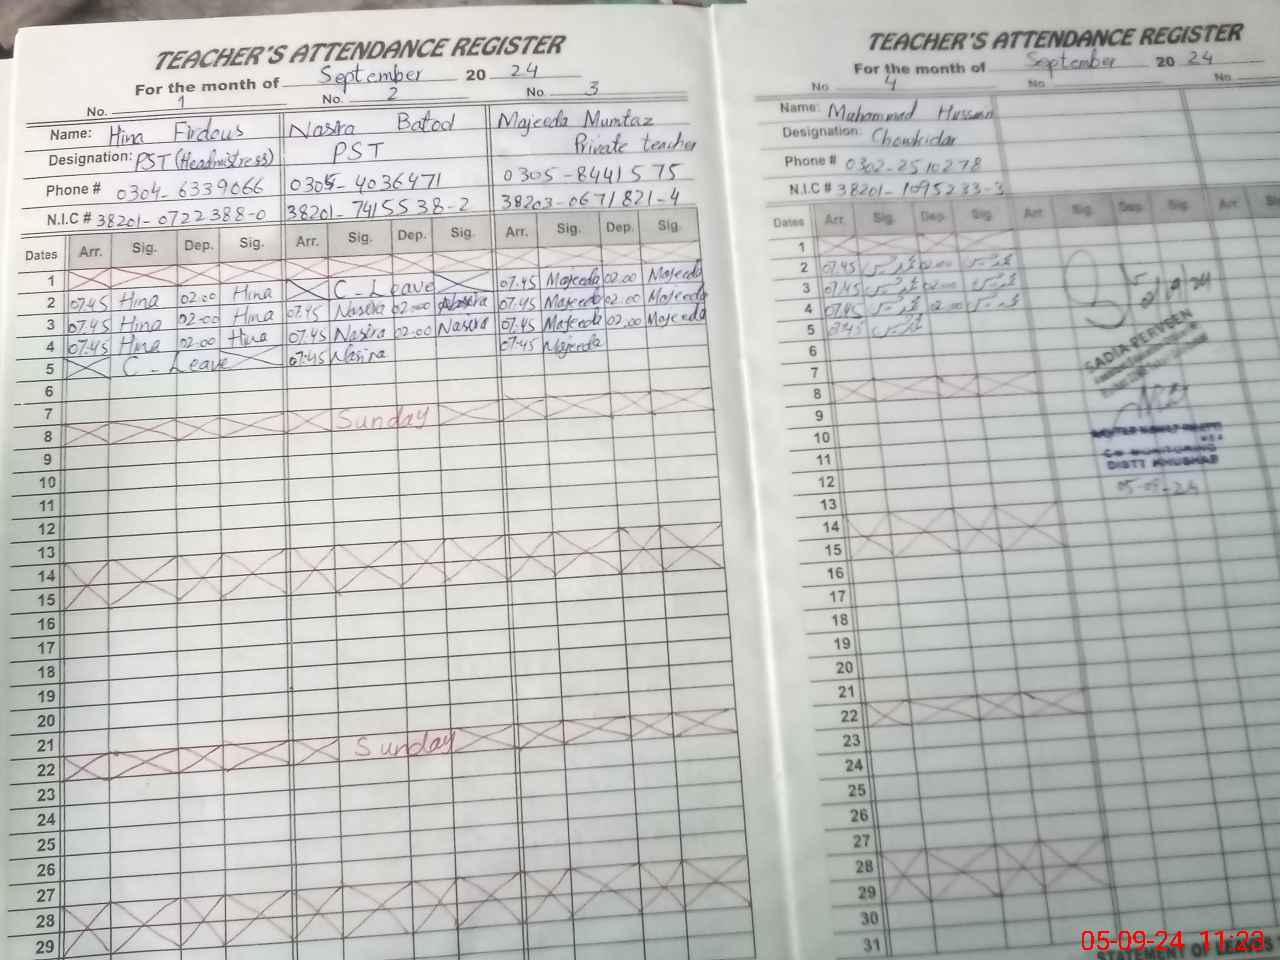 TEACHER'S ATTENDANCE REGISTER
For the month of September 20 24
No. 1 No. 2 No. 3
Name: Hina Firdous Nasira Batool Majeeda Mumtaz
Designation: PST (Headmistress) PST Private teacher
Phone # 0304-6339066 0305-4036471 0305-8441575
N.I.C # 38201-0722388-0 38201-7415538-2 38203-0671821-4
Dates Arr. Sig. Dep. Sig. Arr. Sig. Dep. Sig. Arr. Sig. Dep. Sig.
1
2 07.45 Hina 02:00 Hina C-Leave 07.45 Majeeda 02.00 Majeeda
3 07.45 Hina 02-00 Hina 07.45 Nasira 02-00 Nasira 07.45 Majeeda 02.00 Majeeda
4 07.45 Hina 02.00 Hina 07.45 Nasira 02.00 Nasira 07.45 Majeeda 02.00 Majeeda
5 C-Leave 07:45 Nasira 07.45 Majeeda
6
7
8 Sunday
9
10
11
12
13
14
15
16
17
18
19
20
21
22 Sunday
23
24
25
26
27
28
29
TEACHER'S ATTENDANCE REGISTER
For the month of September 20 24
No 4 No. No.
Name: Muhammad Hussain
Designation: Chowkidar
Phone # 0302-2510278
N.I.C # 38201-1095233-3
Dates Arr. Sig. Dep. Sig. Arr. Sig. Dep. Sig. Arr.
1
2 07.45 02.00
3 07.45 02.00
4 07.45 02.00
5 07.45
6
7
8
9
10
11
12
13
14
15
16
17
18
19
20
21
22
23
24
25
26
27
28
29
30
31
SADIA PERVEEN
DISTT KHUSHAB
05-09-24
STATEMENT OF LEAVES
05-09-24 11:23